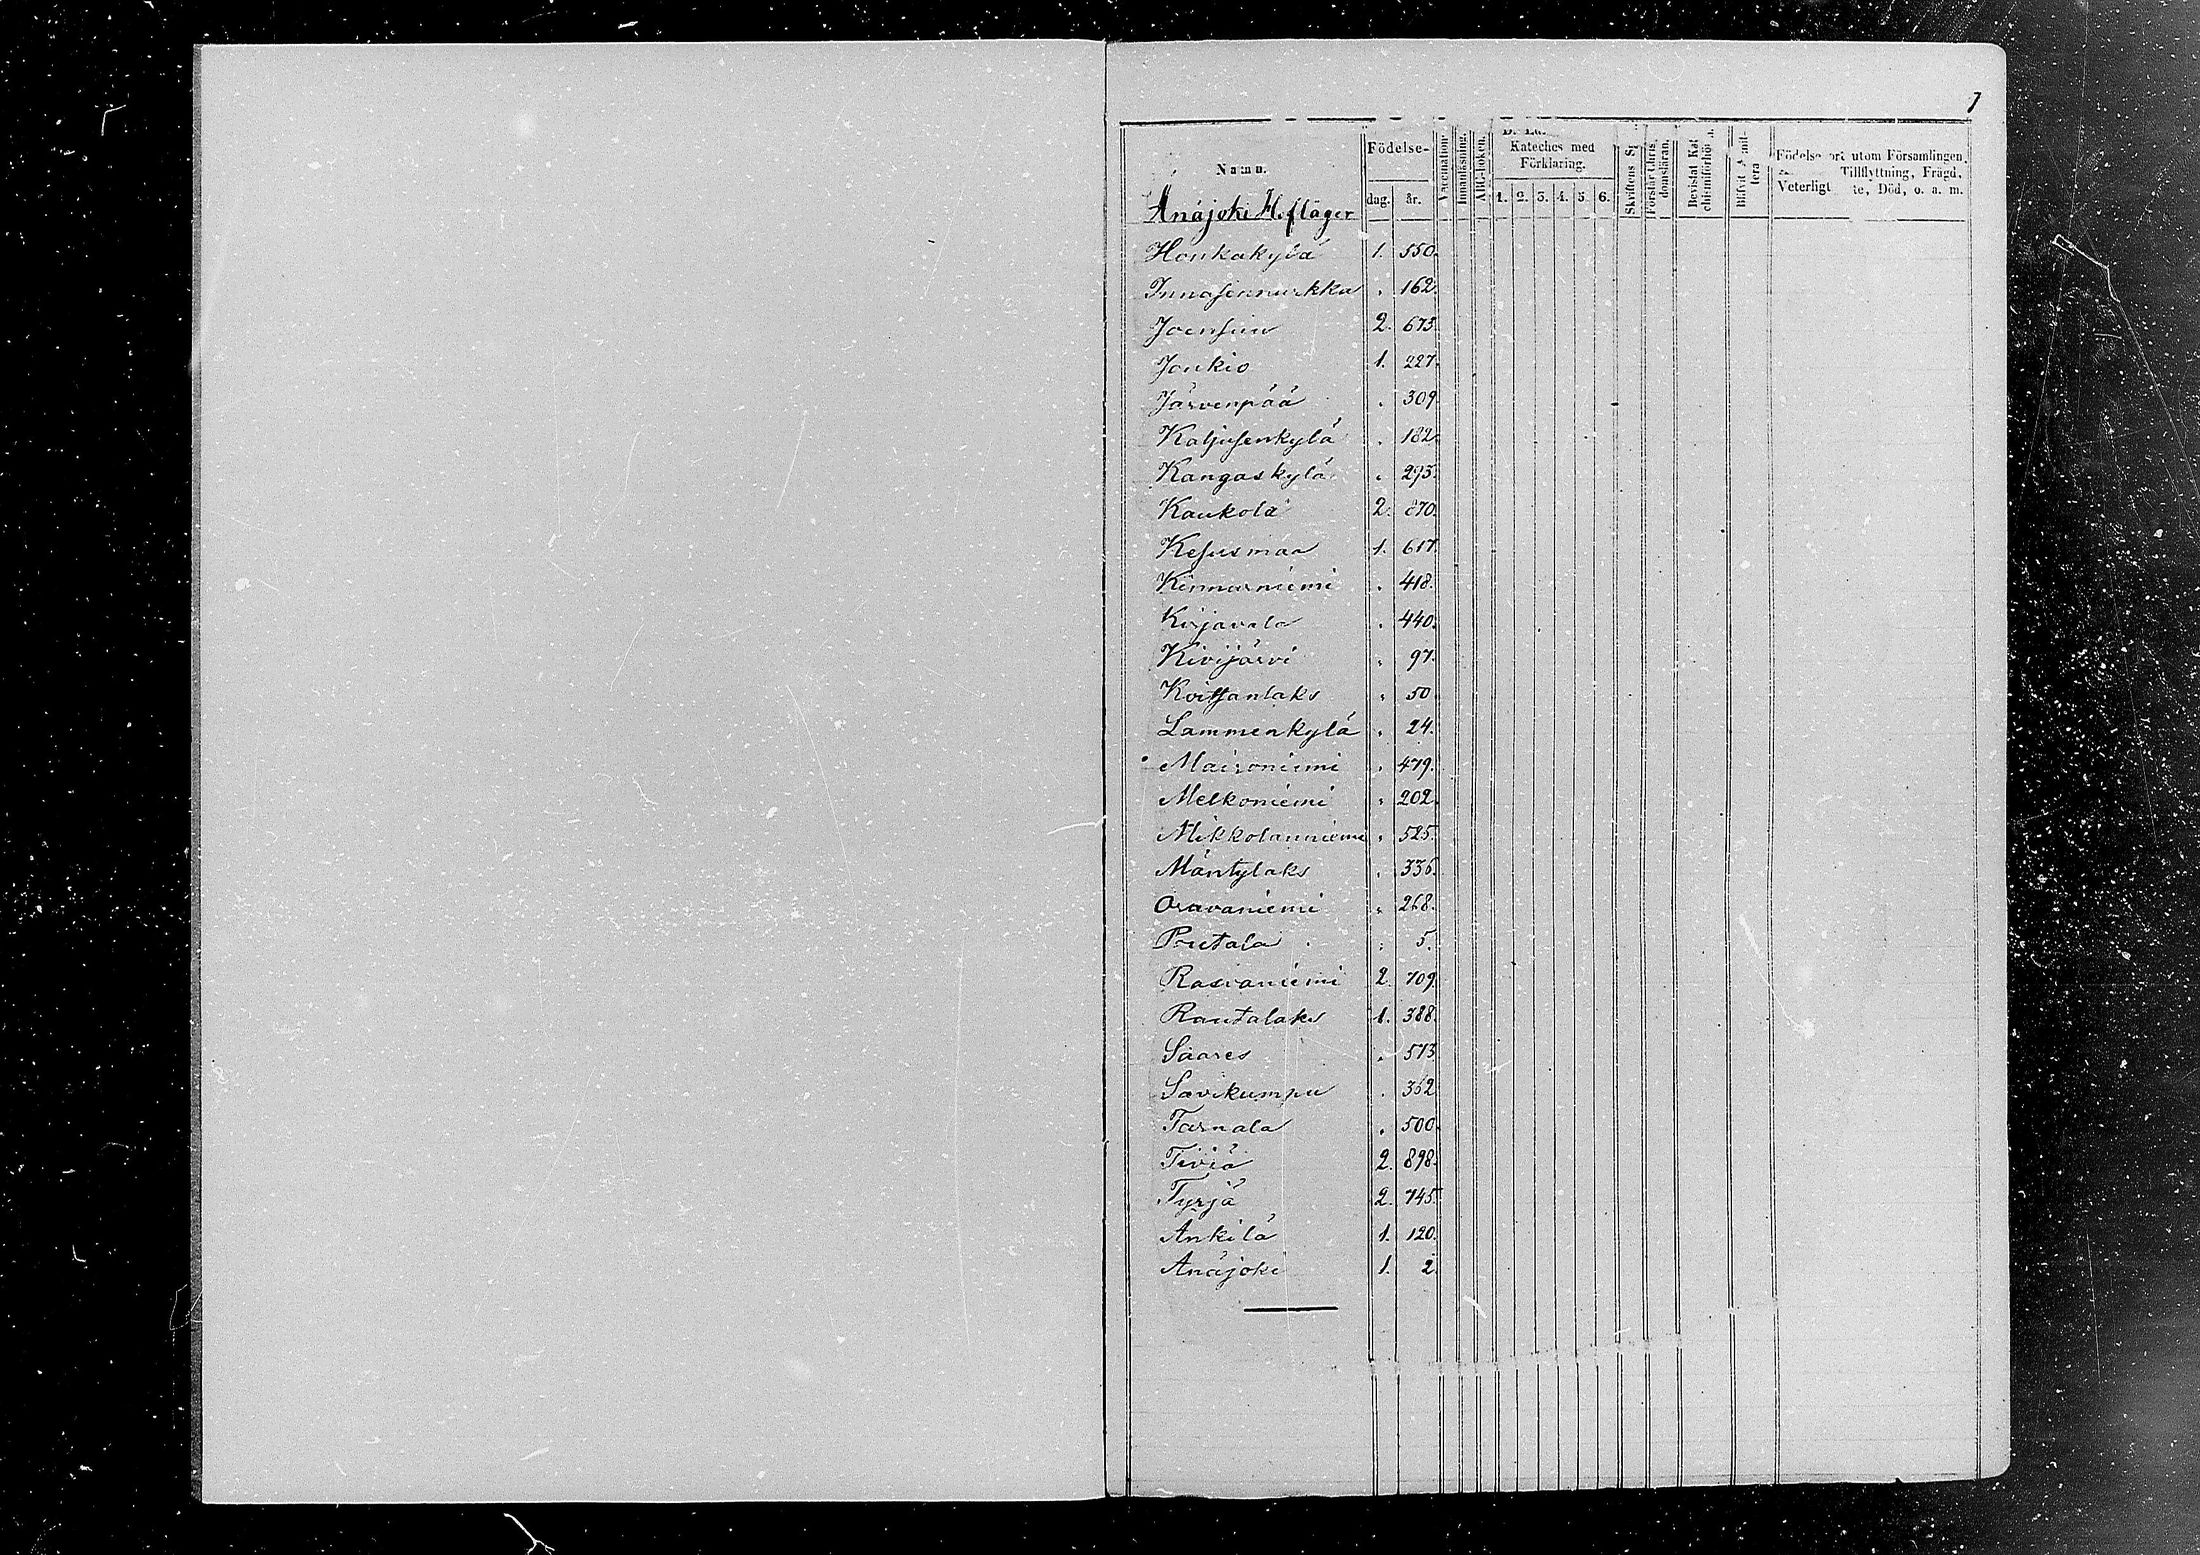 1
Namn.
Födelse-
dag.
år.
Vaccination.
Innanläsning.
ABC-boken.
Kateches med
Förklaring.
1. 2. 3. 4. 5. 6.
Skriftens
Förstår Chris-
domsläran.
Bevistat Kat
chismiförhör
Blifvit
tera
utom Församlingen,
Tillflyttning, Frägd,
Död, o. a. m.
Änäjoki Hofläger
Honkakylä 1. 550.
Innasennurkka " 162.
Joensuu 2. 673.
Joukio 1. 227.
Järvenpää " 309
Kaljusenkylä " 182.
Kangaskylä " 293.
Kaukola 2. 870.
Kesusmaa 1. 617.
Kinnarniemi " 418.
Kirjavala " 440.
Kivijärvi " 97.
Koitsanlaks " 50
Lammenkylä " 24.
Maironiemi " 479.
Melkoniemi " 202.
Mikkolanniemi " 525.
Mäntylaks " 336.
Oravaniemi " 268.
Poutala " 5.
Rasvaniemi 2. 709.
Rautalaks 1. 388.
Saares " 573
Savikumpu " 362
Tarnala " 500.
Tiviä 2. 898.
Tyrjä 2. 745.
Ankilä 1. 120.
Änäjoki 1. 2.